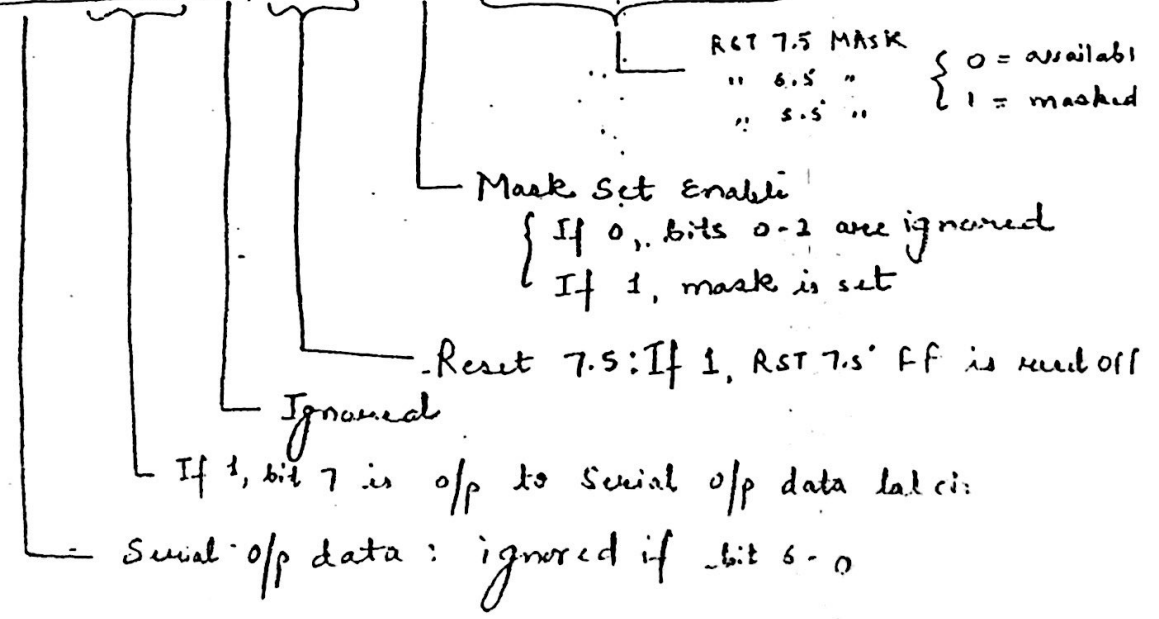 RST 7.5 MASK
" 6.5 "
" 5.5 "
{ 0 = availabl
1 = masked
Mask Set Enable
{ If 0, bits 0-2 are ignored
If 1, mask is set
Reset 7.5: If 1, RST 7.5 FF is off
Ignored
If 1, bit 7 is o/p to Serial o/p data
Serial o/p data : ignored if bit 6 - 0